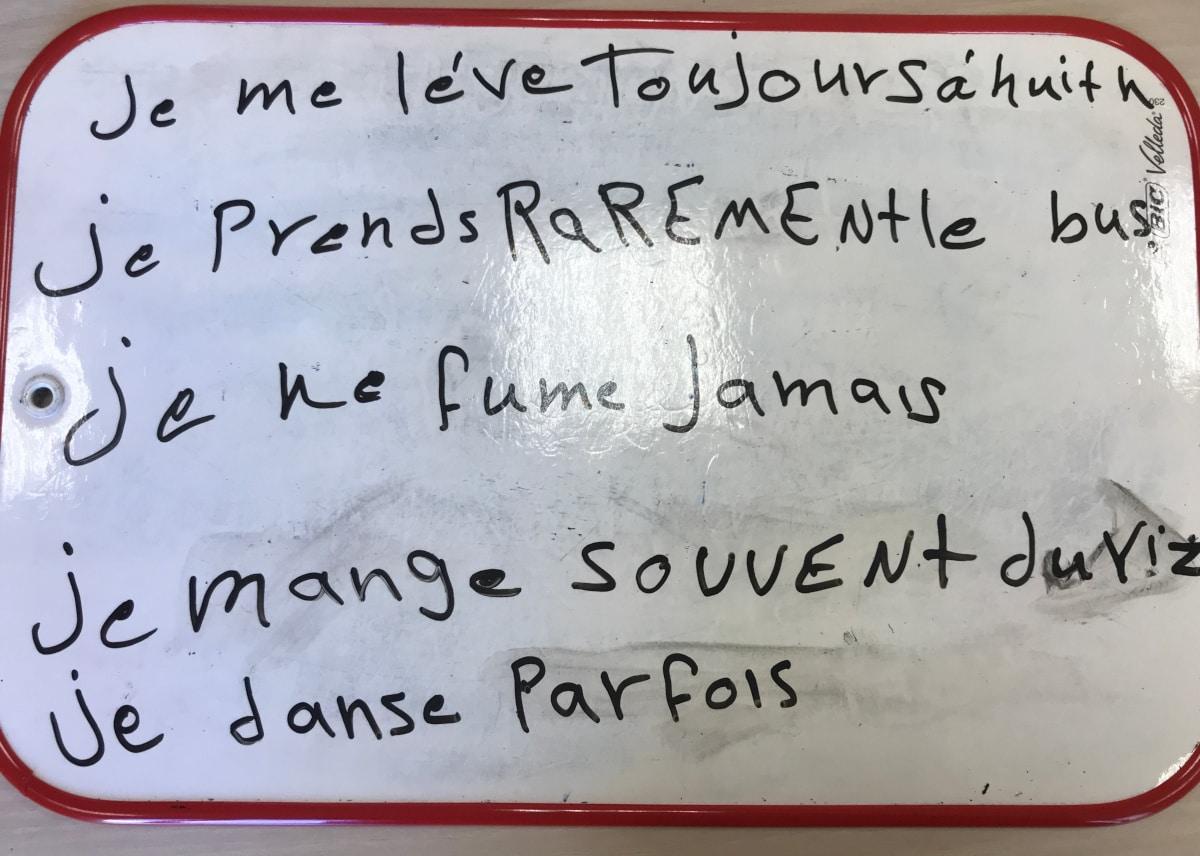 je me léve Toujours á huit h
je Prends RaREMENt le bus
je ne fume Jamais
je mange SOUVENt du riz
je danse Parfois
BIC Velleda